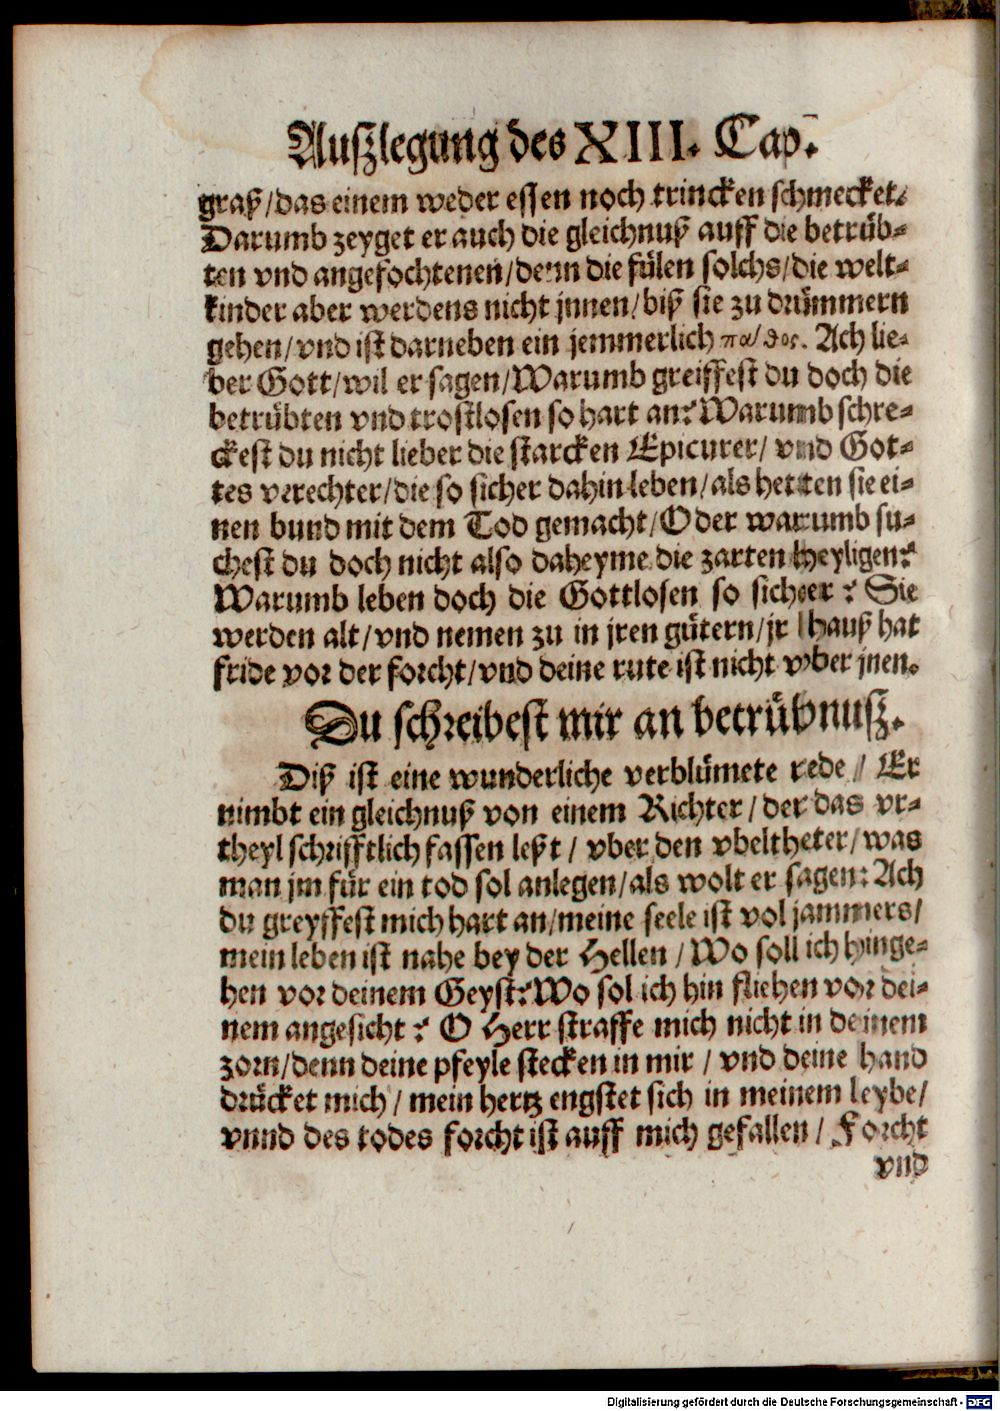 Auſzlegung des XIII. Cap.
graß/das einem weder eſſen noch trincken ſchmecket.
Darumb zeyget er auch die gleichnuß auff die betrüb-
ten vnd angefochtenen/denn die fülen ſolchs/die welt-
kinder aber werdens nicht jnnen/biß ſie zu drümmern
gehen/vnd iſt darneben ein jemmerlich πάθος. Ach lie-
ber Gott/wil er ſagen/Warumb greiffeſt du doch die
betrübten vnd troſtloſen ſo hart an? Warumb ſchre-
ckeſt du nicht lieber die ſtarcken Epicurer/ vnd Got-
tes verechter/die ſo ſicher dahin leben/als hetten ſie ei-
nen bund mit dem Tod gemacht/Oder warumb ſu-
cheſt du doch nicht alſo daheyme die zarten Heyligen?
Warumb leben doch die Gottloſen ſo ſicher? Sie
werden alt/vnd nemen zu in jren gütern/jr Hauß hat
fride vor der forcht/vnd deine rute iſt nicht vber jnen.
Du ſchreibeſt mir an betrübnuſz.
Diß iſt eine wunderliche verblümete rede/ Er
nimbt ein gleichnuß von einem Richter/der das vr-
theyl ſchrifftlich faſſen leßt/ vber den vbeltheter/was
man jm für ein tod ſol anlegen/als wolt er ſagen: Ach
du greyffeſt mich hart an/meine ſeele iſt vol jammers/
mein leben iſt nahe bey der Hellen/Wo ſoll ich hinge-
hen vor deinem Geyſt? Wo ſol ich hin fliehen vor dei-
nem angeſicht? O Herr ſtraffe mich nicht in deinem
zorn/denn deine pfeyle ſtecken in mir/ vnd deine hand
drücket mich/ mein hertz engſtet ſich in meinem leybe/
vnnd des todes forcht iſt auff mich gefallen/ Forcht
vnd
Digitalisierung gefördert durch die Deutsche Forschungsgemeinschaft - DFG